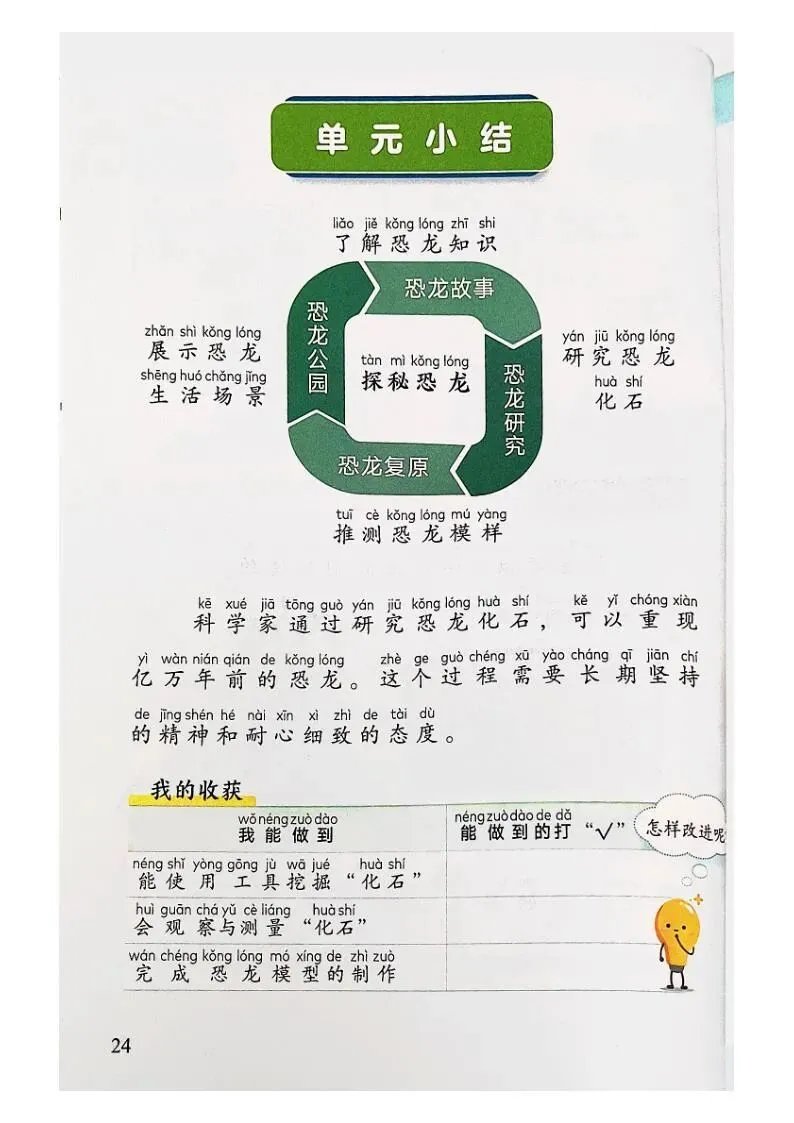 单元小结
liǎo jiě kǒng lóng zhī shi
了解恐龙知识
恐龙故事
恐龙公园
zhǎn shì kǒng lóng
展示恐龙
shēng huó chǎng jǐng
生活场景
tàn mì kǒng lóng
探秘恐龙
恐龙研究
yán jiū kǒng lóng
研究恐龙
huà shí
化石
恐龙复原
tuī cè kǒng lóng mú yàng
推测恐龙模样
kē xué jiā tōng guò yán jiū kǒng lóng huà shí kě yǐ chóng xiàn
科学家通过研究恐龙化石，可以重现
yì wàn nián qián de kǒng lóng zhè ge guò chéng xū yào cháng qī jiān chí
亿万年前的恐龙。这个过程需要长期坚持
de jīng shén hé nài xīn xì zhì de tài dù
的精神和耐心细致的态度。
我的收获
wǒ néng zuò dào
我能做到
néng zuò dào de dǎ
能做到的打“√”
怎样改进呢
néng shǐ yòng gōng jù wā jué huà shí
能使用工具挖掘“化石”
huì guān chá yǔ cè liáng huà shí
会观察与测量“化石”
wán chéng kǒng lóng mó xíng de zhì zuò
完成恐龙模型的制作
24